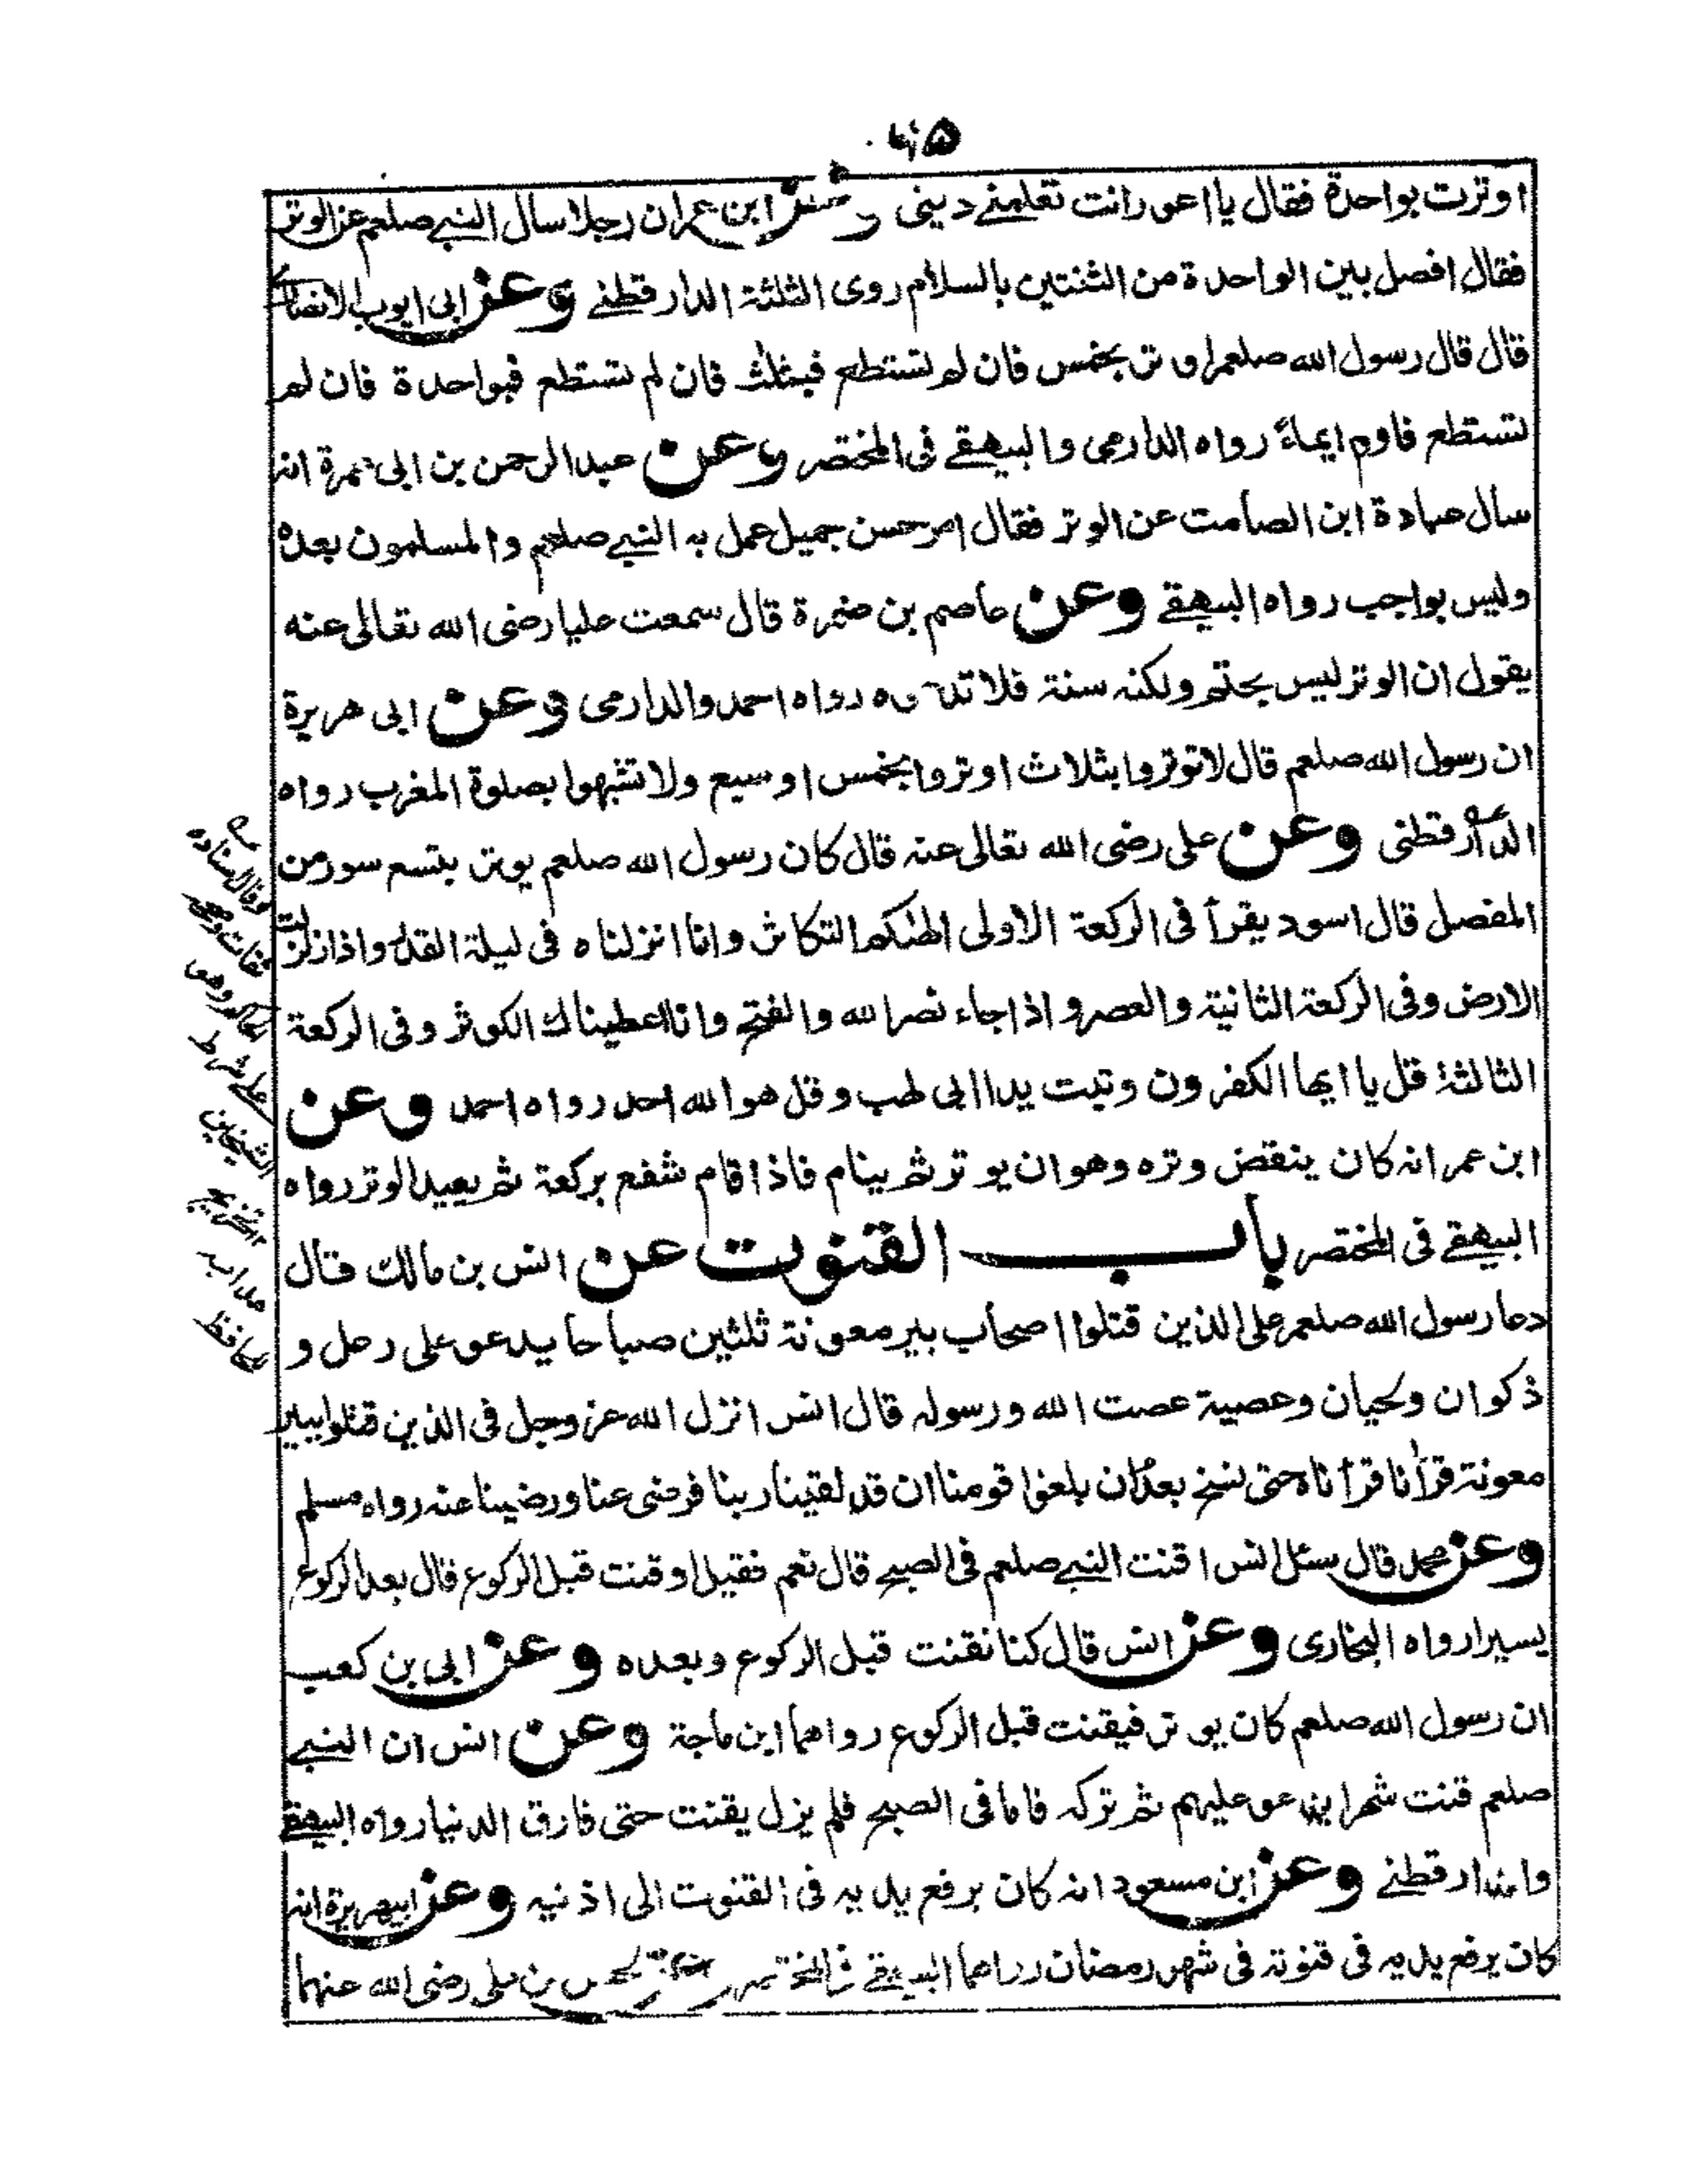 اوترت بواحدة فقال يا اعور انت تعلمنے دينى وعن ابن عمر ان رجلا سال النبے صلعم عن الوتر
فقال افصل بين الواحدة من الثنتين بالسلام روى الثلثة الدارقطنے وعن ابى ايوب الانصارى
قال قال رسول الله صلعم اوتر بخمس فان لم تستطع فبثلث فان لم تستطع فبواحدة فان لم
تستطع فاوم ايماءً رواه الدارمى والبيهقے فى المختصر وعن عبدالرحمن بن ابى عمرة انه
سال عبادة ابن الصامت عن الوتر فقال امر حسن جميل عمل به النبے صلعم والمسلمون بعده
وليس بواجب رواه البيهقے وعن عاصم بن ضمرة قال سمعت عليا رضى الله تعالى عنه
يقول ان الوتر ليس بحتم ولكنه سنة فلا تدعوه رواه احمد والدارمى وعن ابى هريرة
ان رسول الله صلعم قال لا توتروا بثلاث اوتروا بخمس او سبع ولا تشبهوا بصلوة المغرب رواه
الدارقطنى وعن على رضى الله تعالى عنه قال كان رسول الله صلعم يوتر بتسع سور من
المفصل قال اسود يقرأ فى الركعة الاولى الهٰكم التكاثر وانا انزلناه فى ليلة القدر واذا زلزلت
الارض وفى الركعة الثانية والعصر و اذا جاء نصر الله والفتح وانا اعطيناك الكوثر وفى الركعة
الثالثة قل يا ايها الكفرون وتبت يدا ابى لهب وقل هو الله احد رواه احمد وعن
ابن عمر انه كان ينقض وتره وهو ان يوتر ثم ينام فاذا قام شفع بركعة ثم يعيد الوتر رواه
البيهقے فى المختصر باب القنوت عن انس بن مالك قال
دعا رسول الله صلعم على الذين قتلوا اصحاب بير معونة ثلثين صباحا يدعو على رعل و
ذكوان ولحيان وعصية عصت الله ورسوله قال انس انزل الله عز وجل فى الذين قتلوا ببير
معونة قرآنا قرأناه حتى نسخ بعدُ ان بلغوا قومنا ان قد لقينا ربنا فرضى عنا ورضينا عنه رواه مسلم
وعن محمد قال سئل انس اقنت النبے صلعم فى الصبح قال نعم فقيل اوقنت قبل الركوع قال بعد الركوع
يسيرا رواه البخارى وعن انس قال كنا نقنت قبل الركوع وبعده وعن ابى بن كعب
ان رسول الله صلعم كان يوتر فيقنت قبل الركوع رواهما ابن ماجة وعن انس ان النبے
صلعم قنت شهرا يدعو عليهم ثم تركه فاما فى الصبح فلم يزل يقنت حتى فارق الدنيا رواه البيهقے
والدارقطنے وعن ابن مسعود انه كان يرفع يديه فى القنوت الى اذنيه وعن ابيهريرة انه
كان يرفع يديه فى قنوته فى شهر رمضان رواهما البيهقے فى المختصر وعن الحسن بن على رضى الله عنهما
وقال اسناده
على شرط
الشيخين